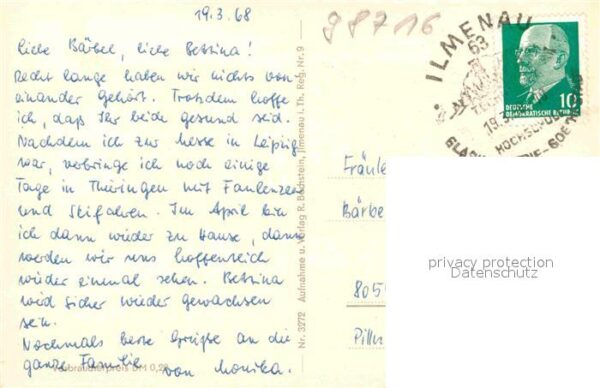 19.3.68
98716
Liebe Bärbel, liebe Bettina!
Recht lange haben wir nichts von
einander gehört. Trotzdem hoffe
ich, daß Ihr beide gesund seid.
Nachdem ich zur Messe in Leipzig
war, verbringe ich noch einige
Tage in Thüringen mit Faulenzen
und Skifahren. Im April bin
ich dann wieder zu Hause, dann
werden wir uns hoffentlich
wieder einmal sehen. Bettina
wird sicher wieder gewachsen
sein.
Nochmals beste Grüße an die
ganze Familie
von Monika.
Verbraucherpreis DM 0,20
Nr. 3272 Aufnahme u. Verlag R. Bechstein, Jlmenau i. Th. Reg. Nr. 9
ILMENAU
63
19.3
HOCHSCHUL
DEUTSCHE
DEMOKRATISCHE REPUBLIK
10
Fräule
Bärbe
805
Pilln
privacy protection
Datenschutz